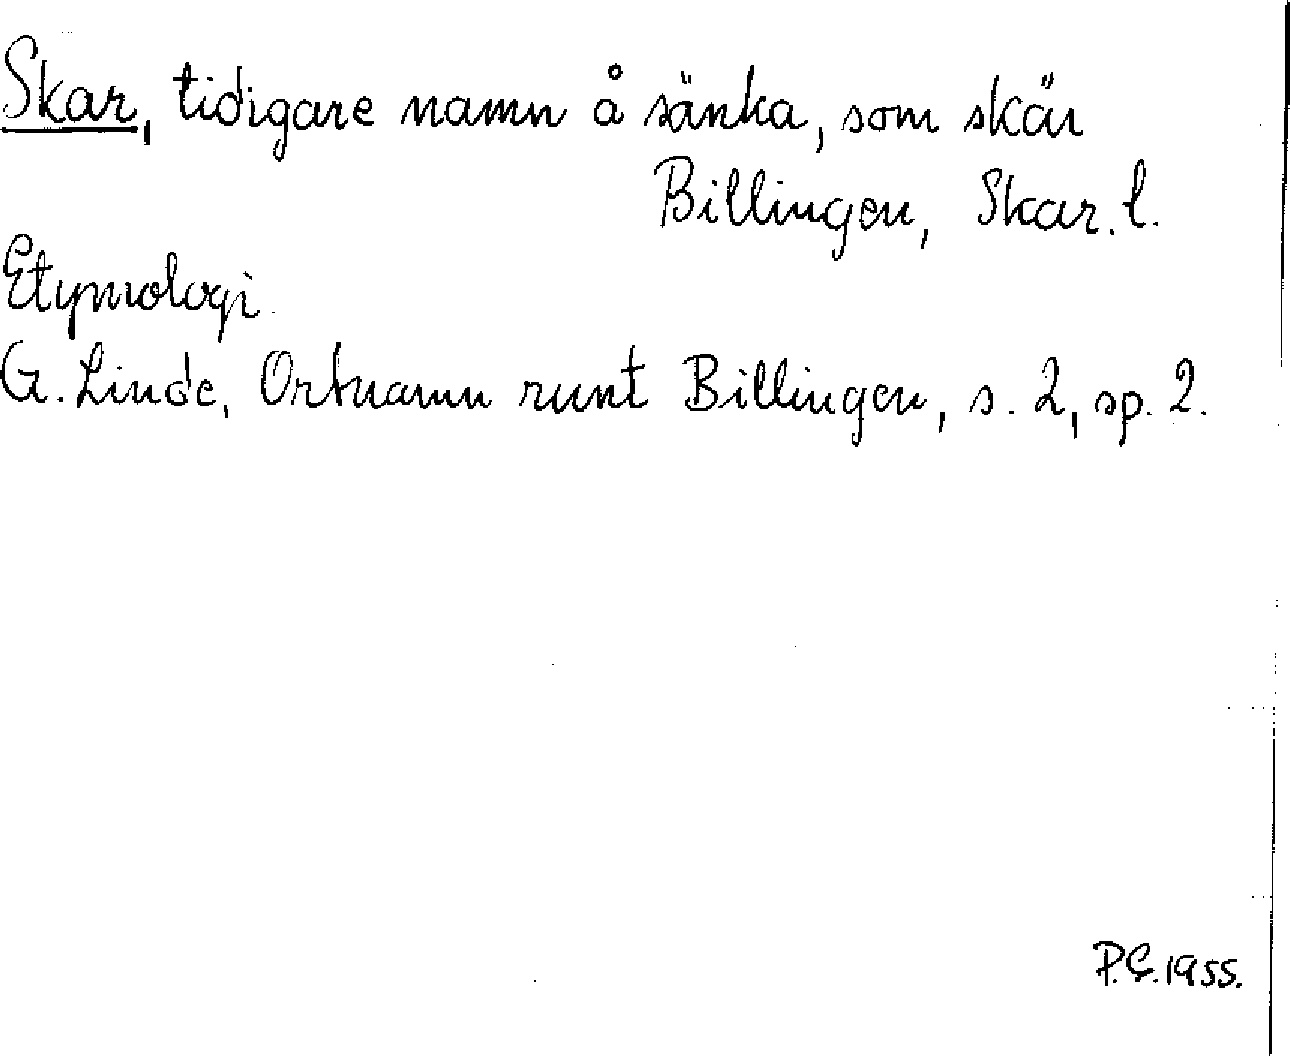 Skar, tidigare namn å sänka, som skär
Billingen, Skar. l.
Etymologi.
G. Linde, Ortnamn runt Billingen, s. 2, sp. 2.
P.G. 1955.